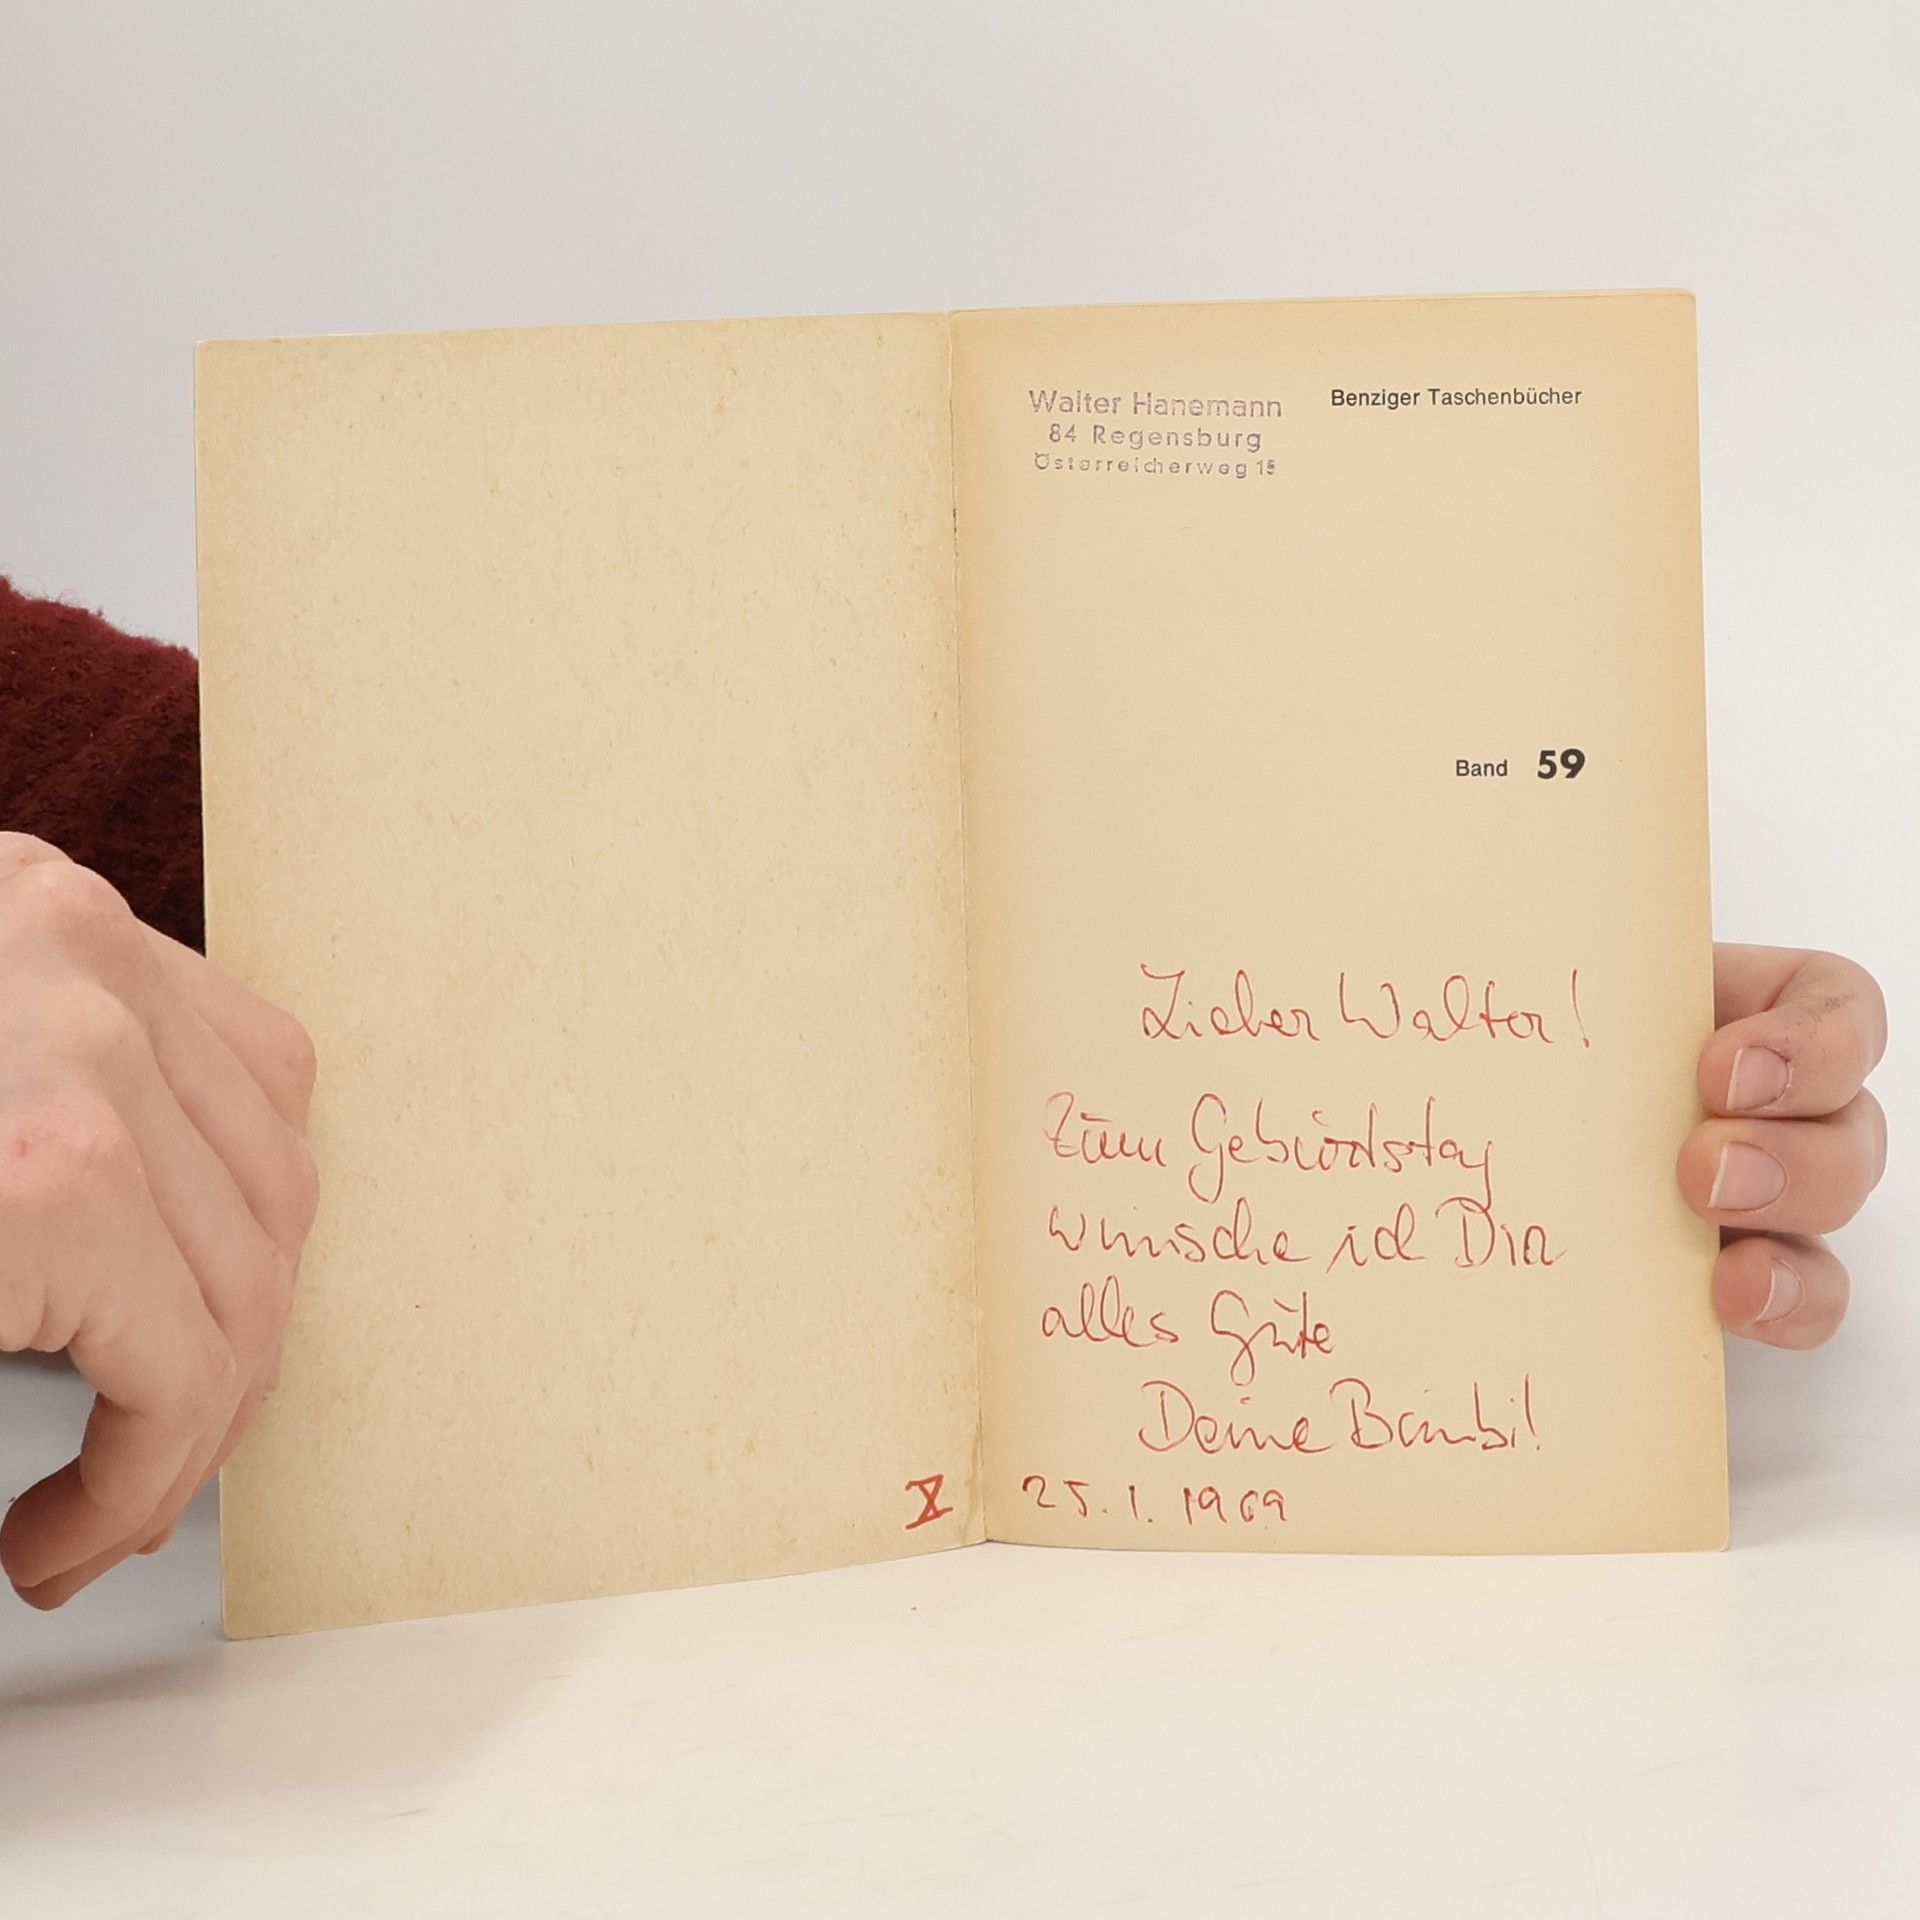 Walter Hanemann
84 Regensburg
Österreicherweg 15
Benziger Taschenbücher
Band 59
Lieber Walter!
Zum Geburtstag
wünsche ich Dir
alles Gute
Deine Bimbi!
X 25.1.1969